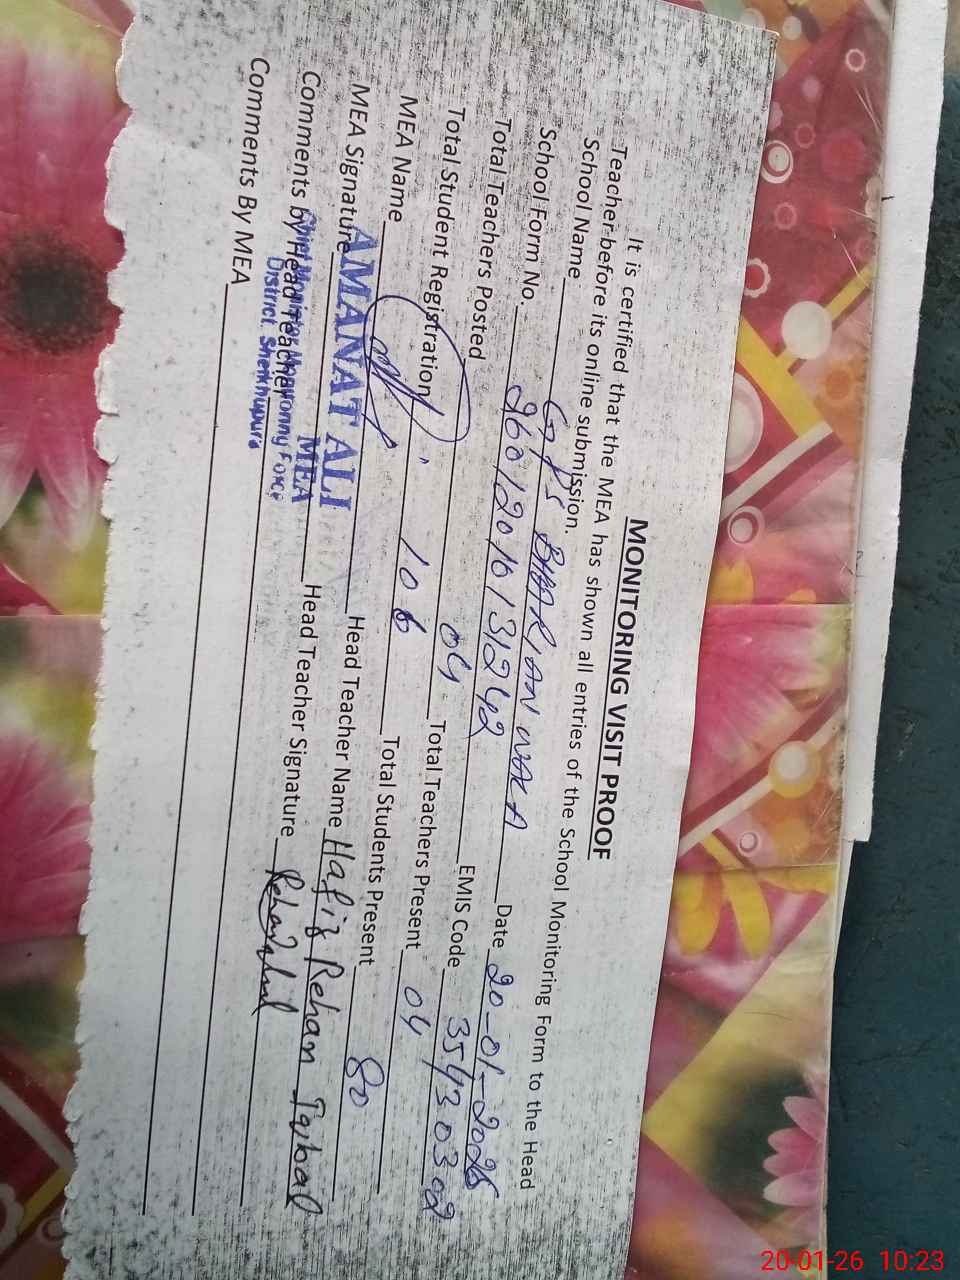 MONITORING VISIT PROOF
It is certified that the MEA has shown all entries of the School Monitoring Form to the Head
Teacher before its online submission.
School Name GPS BHAKIAN WALA Date 20-01-2026
School Form No. 26012016131242 EMIS Code 35430302
Total Teachers Posted 04 Total Teachers Present 04
Total Student Registration 106 Total Students Present 80
MEA Name AMANAT ALI Head Teacher Name Hafiz Rehan Iqbal
MEA Signature MEA Head Teacher Signature
Comments by Head Teacher
District Sheikhupura
Comments By MEA
20-01-26 10:23